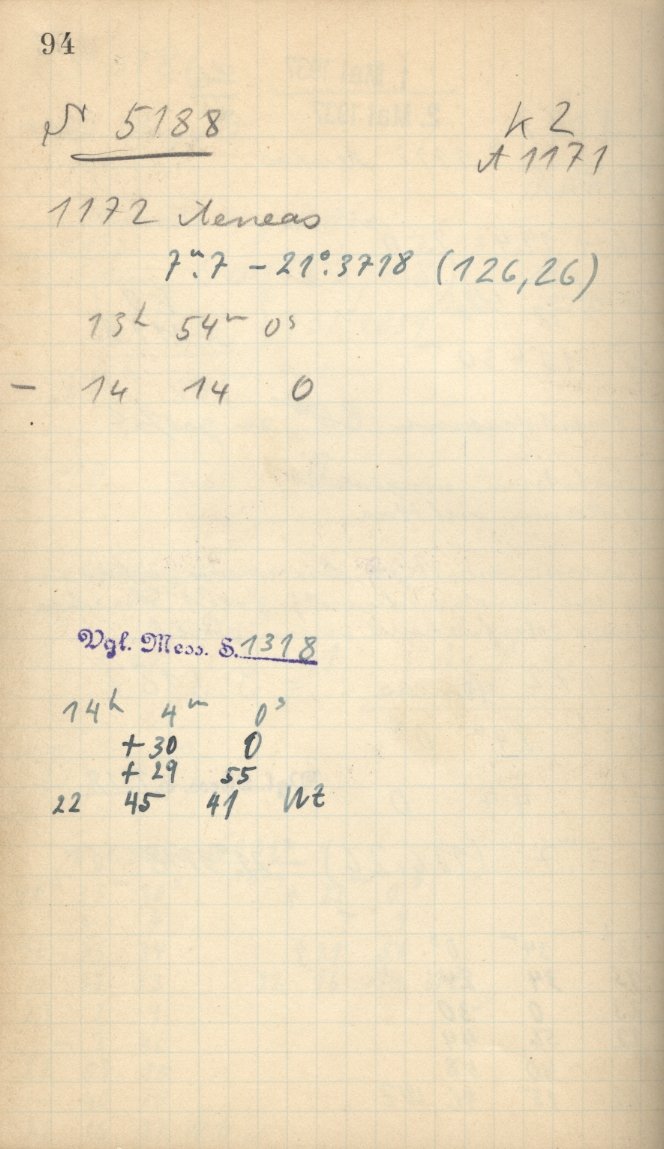 94
N 5188
K 2
A 1171
1172 Aeneas
7ᵐ.7 – 21°.3718 (126,26)
13ʰ 54ᵐ 0ˢ
– 14 14 0
Vgl. Mess. S. 1318
14ʰ 4ᵐ 0ˢ
+ 30 0
+ 29 55
22 45 41 Wt